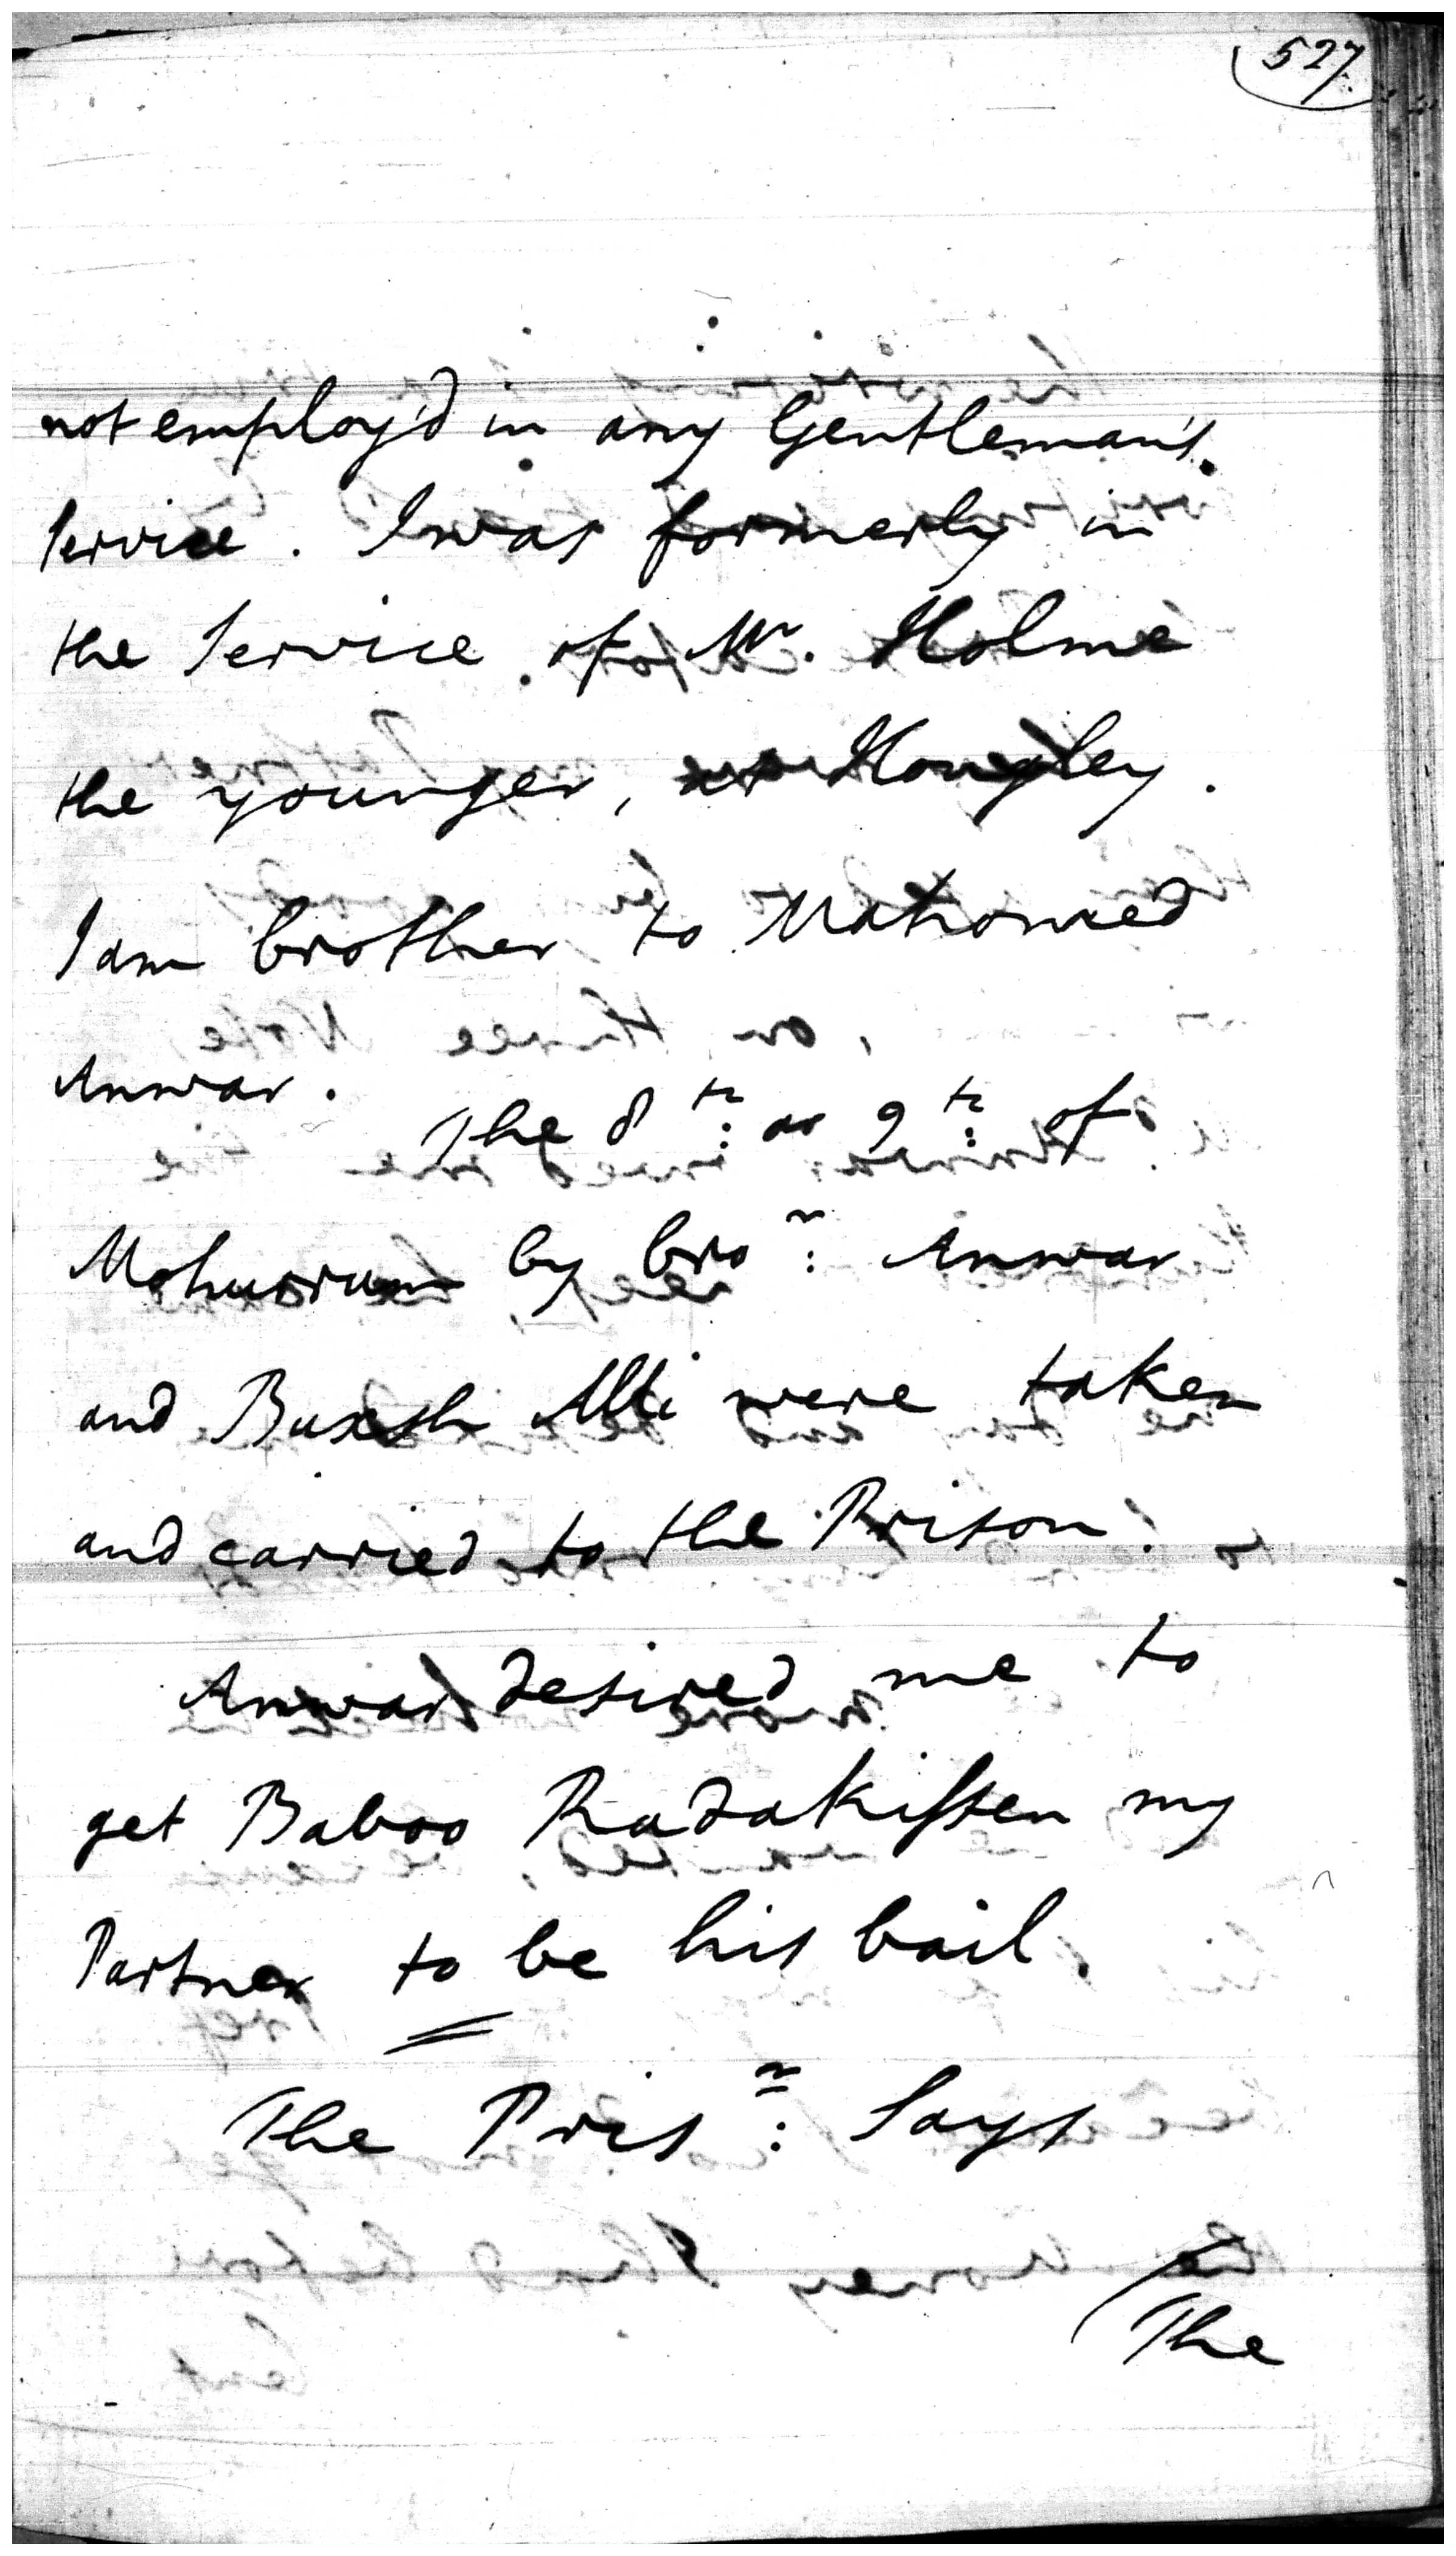 527
not employ'd in any Gentleman's
Service. I was formerly in
the Service of Mr. Holme
the younger, at Houghley.
I am brother to Mahomed
Anwar.
The 8th: or 9th: of
Mohurrum by bror: Anwar
and Buxsh Alli were taken
and carried to the Prison.
Anwar desired me to
get Baboo Radakissen my
Partner to be his bail.
The Prisr: Says
The